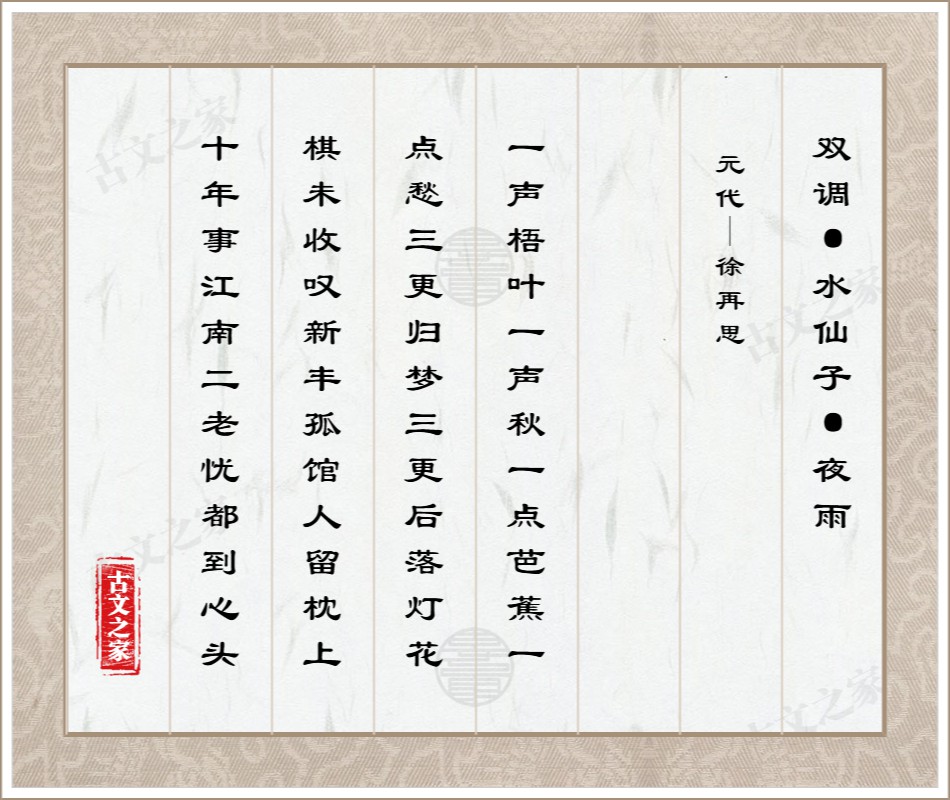 双调●水仙子●夜雨
元代—徐再思
一声梧叶一声秋一点芭蕉一
点愁三更归梦三更后落灯花
棋未收叹新丰孤馆人留枕上
十年事江南二老忧都到心头
古文之家
古文之家
古文之家
古文之家
古文之家